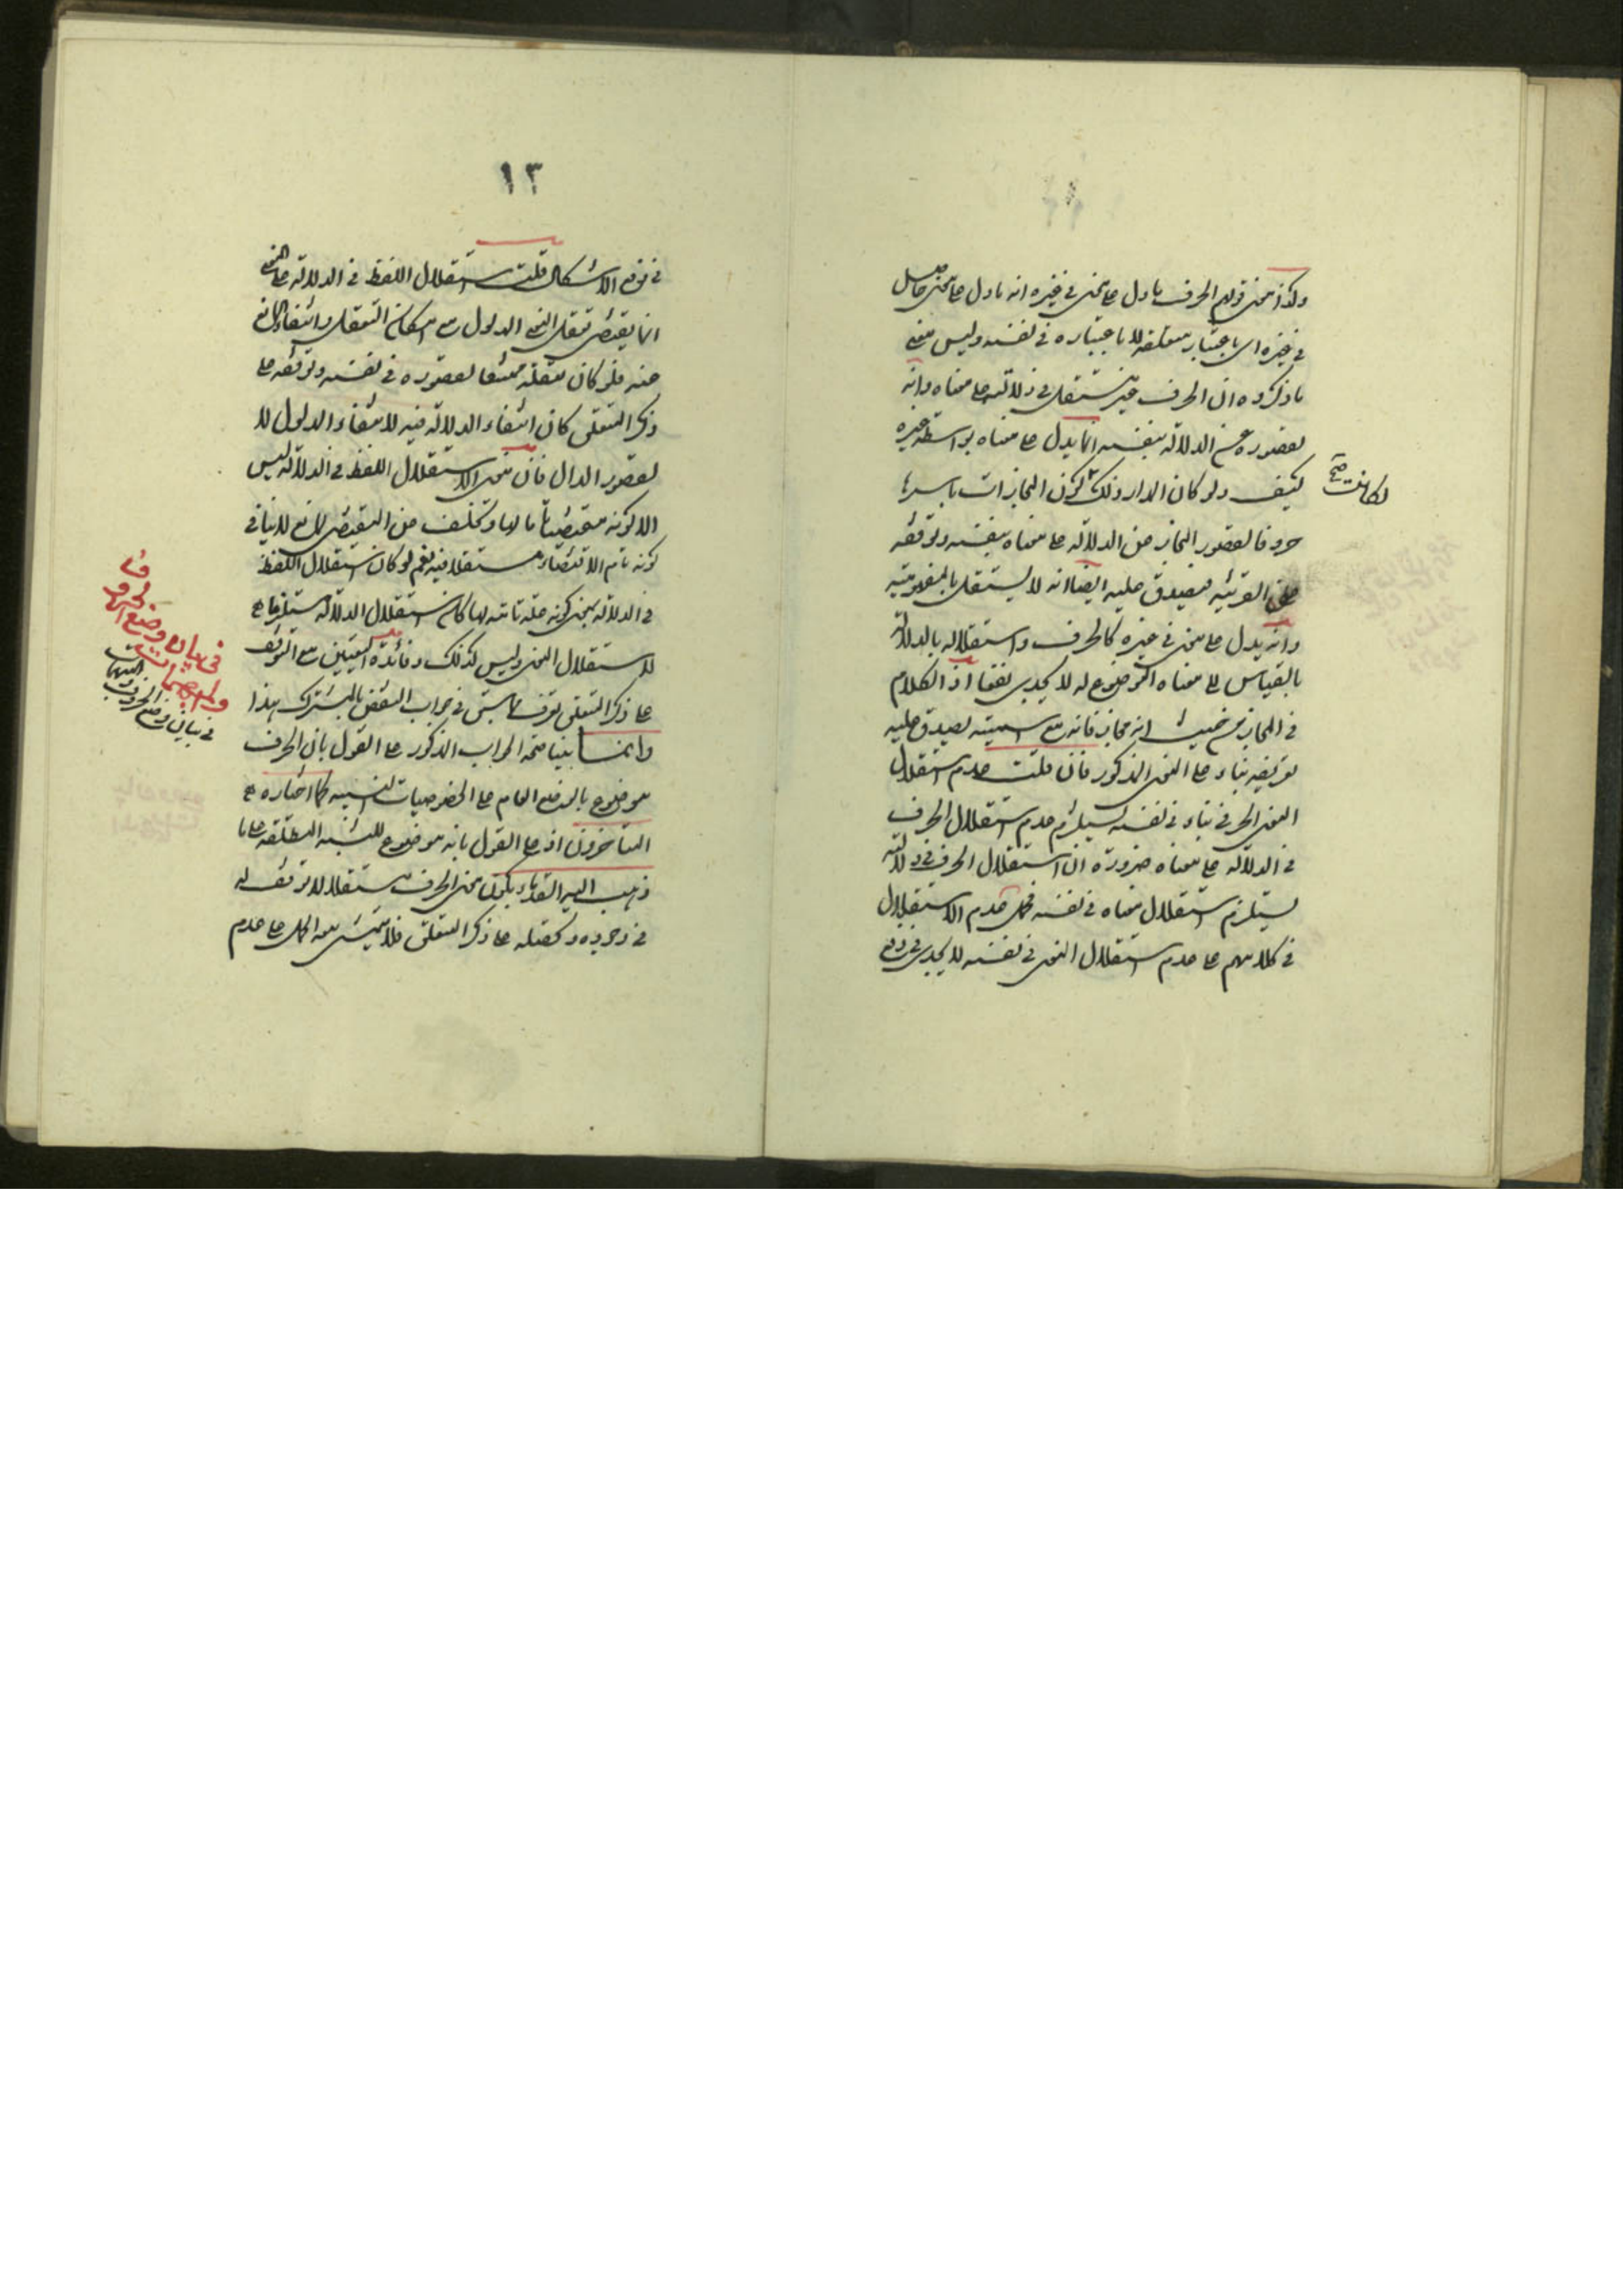 ولذا معنى قولهم الحرف ما دل على معنى في غيره انه ما دل على معنى حاصل
في غيره اى باعتبار متعلقه لا باعتباره في نفسه وليس معنى
ما ذكروه ان الحرف غير مستقل في دلالته على معناه وانه
لقصوره عن الدلالة بنفسه انما يدل على معناه بواسطة غيره
كيف ولو كان المدار ذلك لكون المجازات باسرها
لكانت صح
حروفا لقصور المجاز عن الدلالة على معناه بنفسه وتوقفه
على القرينة فيصدق عليه ايضا انه لا يستقل بالمفهومية
وانه يدل على معنى في غيره كالحرف واستقلاله بالدلالة
بالقياس الى معناه الموضوع له لا يجدى نفعا اذ الكلام
في المجاز من حيث انه مجاز فانه مع اسميته يصدق عليه
تعريفه بناء على المعنى المذكور فان قلت عدم استقلال
المعنى الحرفي بناء في نفسه يستلزم عدم استقلال الحرف
في الدلالة على معناه ضرورة ان استقلال الحرف في دلالته
يستلزم استقلال معناه في نفسه فحمل عدم الاستقلال
في كلامهم على عدم استقلال المعنى في نفسه لا يجدى في دفع
١٣
في دفع الاشكال قلت استقلال اللفظ في الدلالة على المعنى
انما يقتضى تعقل المعنى المدلول مع امكان التعقل وانتفاء المانع
عنه فلو كان تعقله ممتنعا لقصوره في نفسه وتوقفه على
ذكر المتعلق كان انتفاء الدلالة فيه لانتفاء المدلول لا
لقصور الدال فان معنى الاستقلال اللفظ في الدلالة ليس
الا كونه مقتضيا تاما لها وتخلف عن المقتضى لمانع لا ينافى
كونه تام الاقتضاء ومستقلا فيه نعم لو كان استقلال اللفظ
في الدلالة بمعنى كونه علة تامة لها كان استقلال الدلالة مستلزما
لاستقلال المعنى وليس كذلك وفائدة التعيين مع التوقف
على ذكر المتعلق تعرف مما سبق في جواب النقض بالمشترك هذا
وانما يتأتى صحة الجواب المذكور على القول بان الحرف
موضوع بالوضع العام على الخصوصيات النسبية كما اختاره
المتأخرون اذ على القول بانه موضوع للنسبة المطلقة على ما
ذهب اليه القدماء يكون معنى الحرف مستقلا لا توقف له
في وجوده وتعقله على ذكر المتعلق فلا يتمشى معه الحمل على عدم
في بيان وضع الحروف
والمبهمات
في بيان وضع الحروف والمبهمات